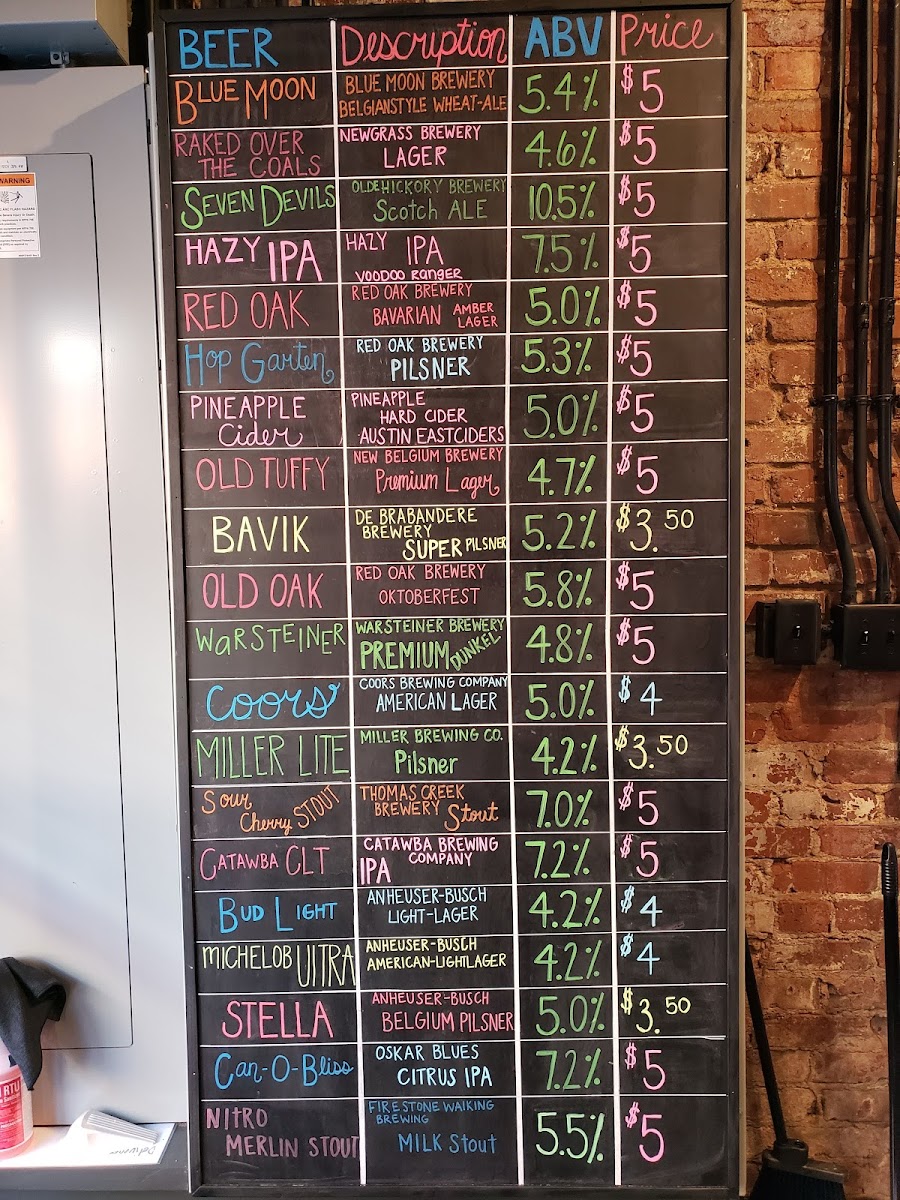 BEER Description ABV Price
BLUE MOON BLUE MOON BREWERY 5.4% $5
BELGIANSTYLE WHEAT-ALE
RAKED OVER NEWGRASS BREWERY 4.6% $5
THE COALS LAGER
SEVEN DEVILS OLDE HICKORY BREWERY 10.5% $5
Scotch ALE
HAZY IPA HAZY IPA 7.5% $5
VOODOO RANGER
RED OAK RED OAK BREWERY 5.0% $5
BAVARIAN AMBER
LAGER
Hop Garten RED OAK BREWERY 5.3% $5
PILSNER
PINEAPPLE PINEAPPLE 5.0% $5
Cider HARD CIDER
AUSTIN EASTCIDERS
OLD TUFFY NEW BELGIUM BREWERY 4.7% $5
Premium Lager
BAVIK DE BRABANDERE 5.2% $3.50
BREWERY
SUPER PILSNER
OLD OAK RED OAK BREWERY 5.8% $5
OKTOBERFEST
WARSTEINER WARSTEINER BREWERY 4.8% $5
PREMIUM DUNKEL
Coors COORS BREWING COMPANY 5.0% $4
AMERICAN LAGER
MILLER LITE MILLER BREWING CO. 4.2% $3.50
Pilsner
Sour THOMAS CREEK 7.0% $5
Cherry STOUT BREWERY Stout
CATAWBA CLT CATAWBA BREWING 7.2% $5
IPA COMPANY
BUD LIGHT ANHEUSER-BUSCH 4.2% $4
LIGHT-LAGER
MICHELOB ULTRA ANHEUSER-BUSCH 4.2% $4
AMERICAN-LIGHTLAGER
STELLA ANHEUSER-BUSCH 5.0% $3.50
BELGIUM PILSNER
Can-O-Bliss OSKAR BLUES 7.2% $5
CITRUS IPA
NITRO FIRESTONE WALKING 5.5% $5
MERLIN STOUT BREWING
MILK Stout
WARNING
RTU